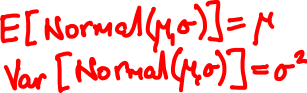 E[Normal(μ,σ)]=μ
Var[Normal(μ,σ)]=σ²